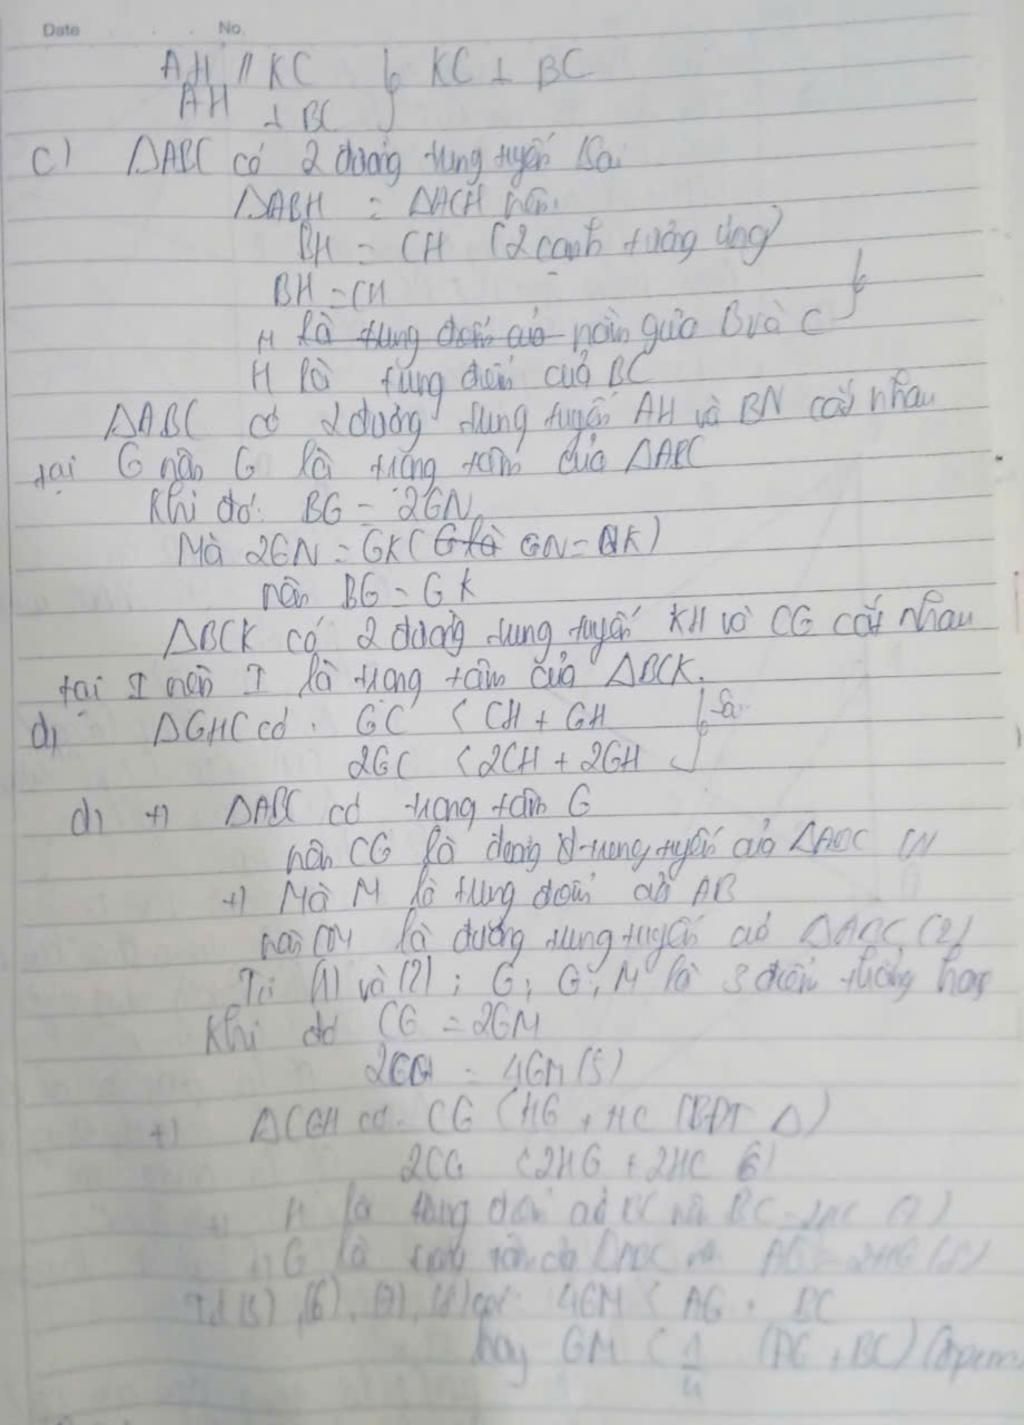 Date No.
AH // KC KC ⊥ BC
AH ⊥ BC
c) ΔABC có 2 đường trung tuyến
ΔABH = ΔACH nên
BH = CH (2 cạnh tương ứng)
BH = CH
H là trung điểm của nằm giữa B và C
H là trung điểm của BC
ΔABC có 2 đường trung tuyến AH và BN cắt nhau
tại G nên G là trọng tâm của ΔABC
Khi đó: BG = 2GN
Mà 2GN = GK (G là GN = NK)
nên BG = GK
ΔBCK có 2 đường trung tuyến KH và CG cắt nhau
tại I nên I là trọng tâm của ΔBCK.
d) ΔGHC có: GC < CH + GH
2GC < 2CH + 2GH
d) +) ΔABC có trọng tâm G
nên CG là đường trung tuyến của ΔABC (1)
+) Mà M là trung điểm của AB
nên CM là đường trung tuyến của ΔABC (2)
Từ (1) và (2); G, M là 3 điểm thẳng hàng
Khi đó CG = 2GM
= 4GM (5)
+) ΔCGH có: CG < HG + HC (BĐT Δ)
2CG < 2HG + 2HC (6)
+) H là trung điểm của BC nên BC = 2HC (7)
+) G là trọng tâm của ΔABC nên AG = 2HG (8)
Từ (5), (6), (7), (8) có: 4GM < AG + BC
hay GM < 1/4 (AG + BC) (đpcm)